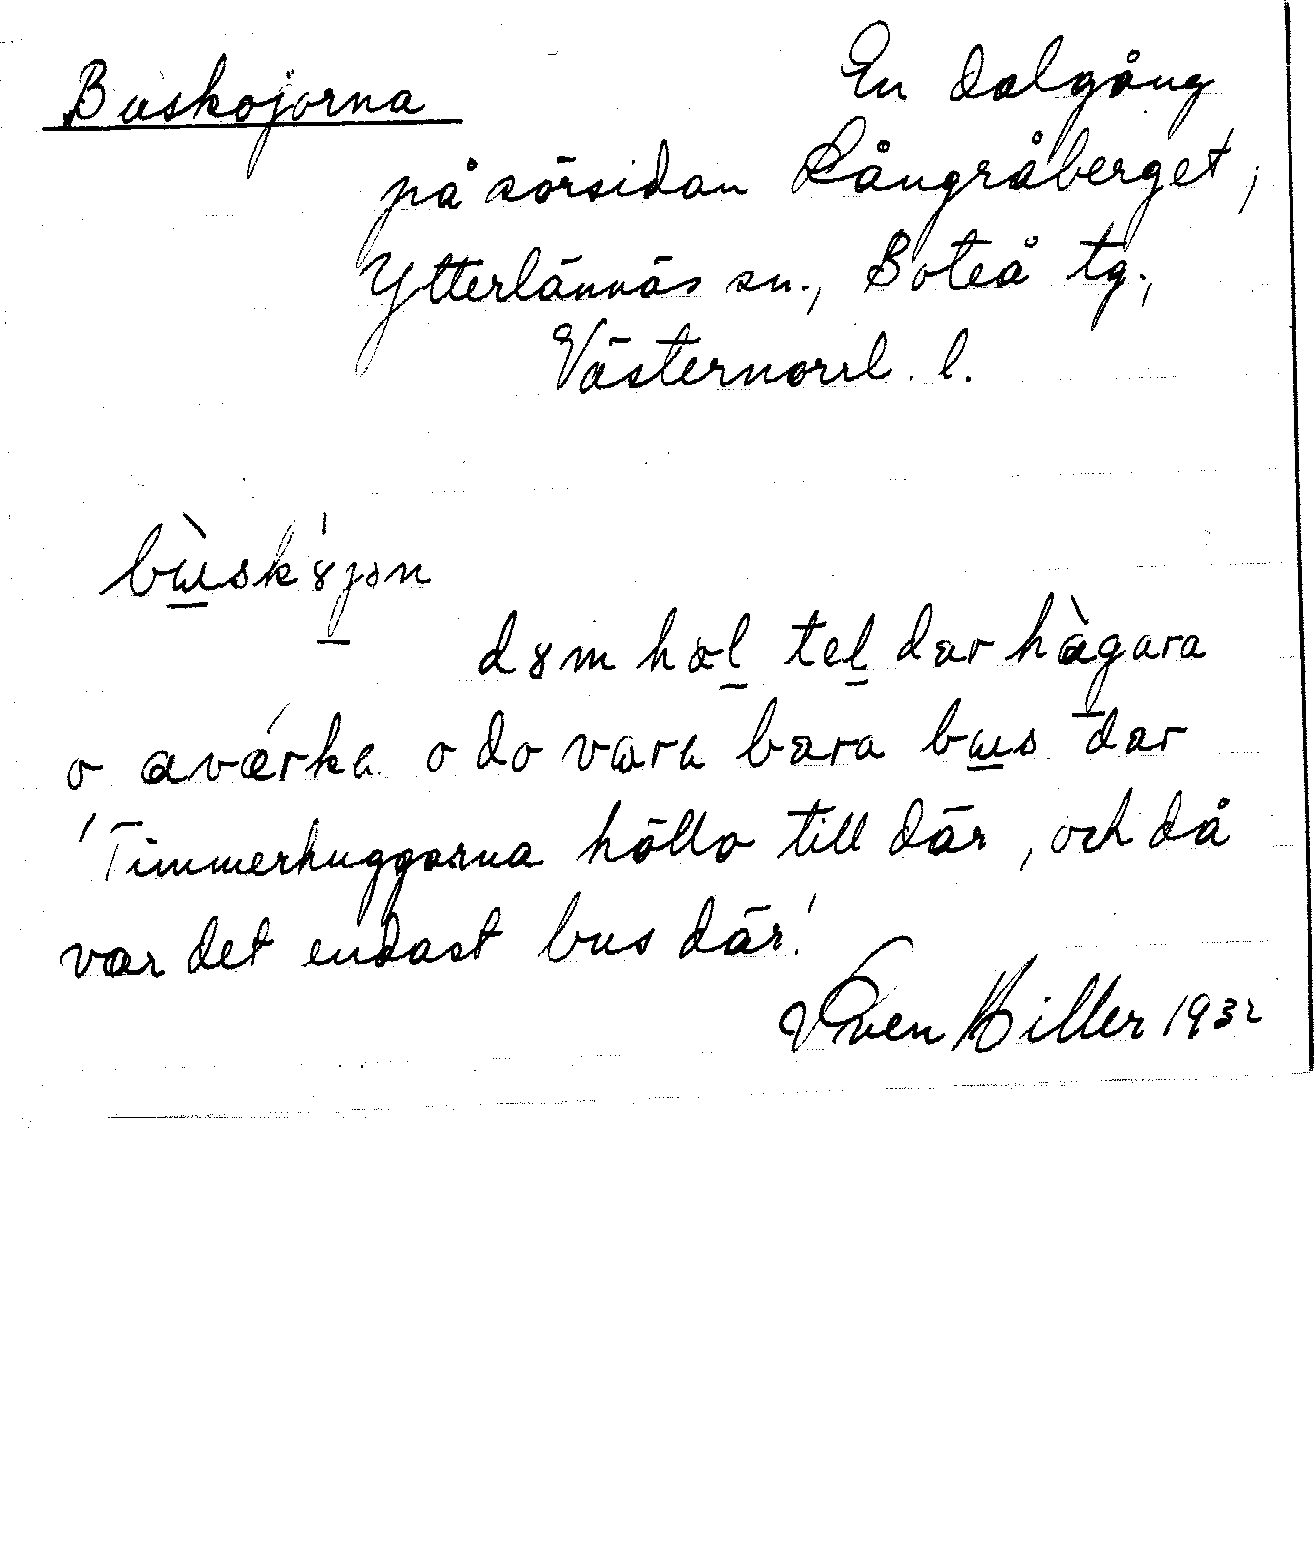 Buskojorna
En dalgång
på sörsidan Långråberget,
Ytterlännäs sn., Boteå tg.,
Västernorrl. l.
bùsk'ȣjən
dȣm hæl tel dær hàgara
o avǽrka o do vara bara bɯs dær
'Timmerhuggarna höllo till där, och då
var det endast bus där!
Sven Hiller 1932